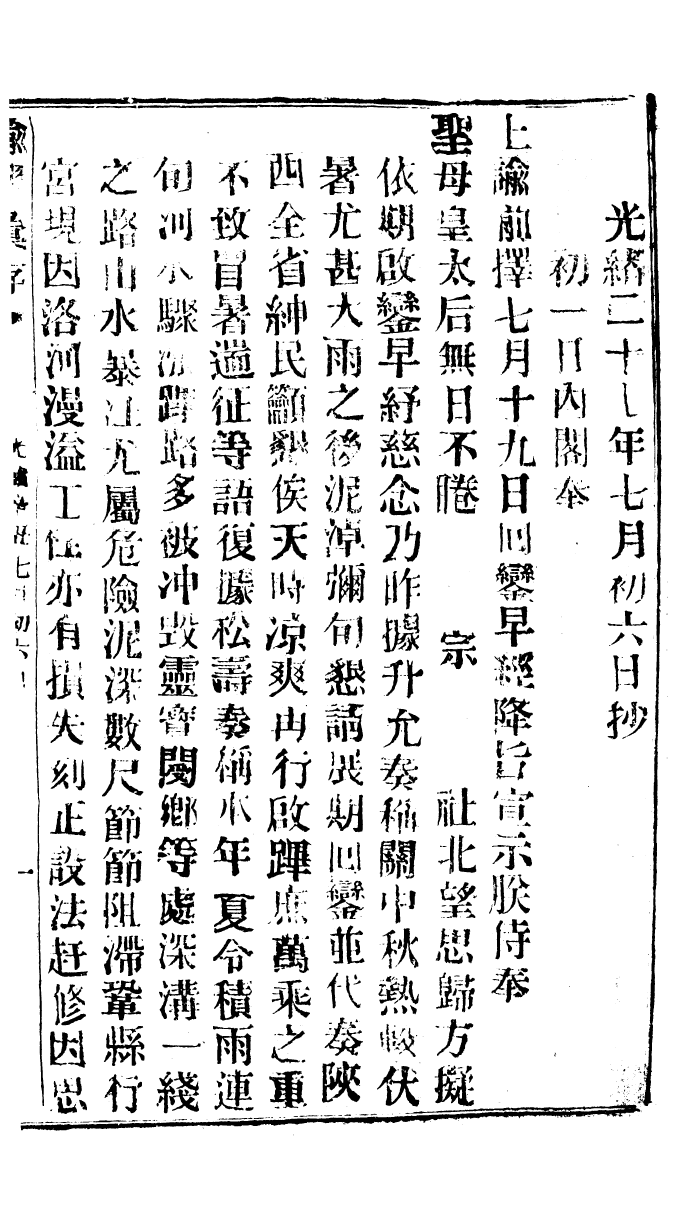 光緒二十七年七月初六日抄
初一日內閣奉
上諭前擇七月十九日回鑾早經降旨宣示朕侍奉
聖母皇太后無日不睠 宗 社北望思歸方擬
依期啟鑾早紓慈念乃昨據升允奏稱關中秋熱峻伏
暑尤甚大雨之後泥淖彌旬懇請展期回鑾並代奏陝
西全省紳民籲懇俟天時凉爽再行啟蹕庶萬乘之重
不致冒暑遄征等語復據松壽奏稱本年夏令積雨連
旬河水驟漲蹕路多被冲毀靈寶閿鄉等處深溝一綫
之路山水暴注尤屬危險泥深數尺節節阻滯鞏縣行
宮現因洛河漫溢工程亦有損失刻正設法赶修因思
諭摺彙存
光緒 七月初六日
一